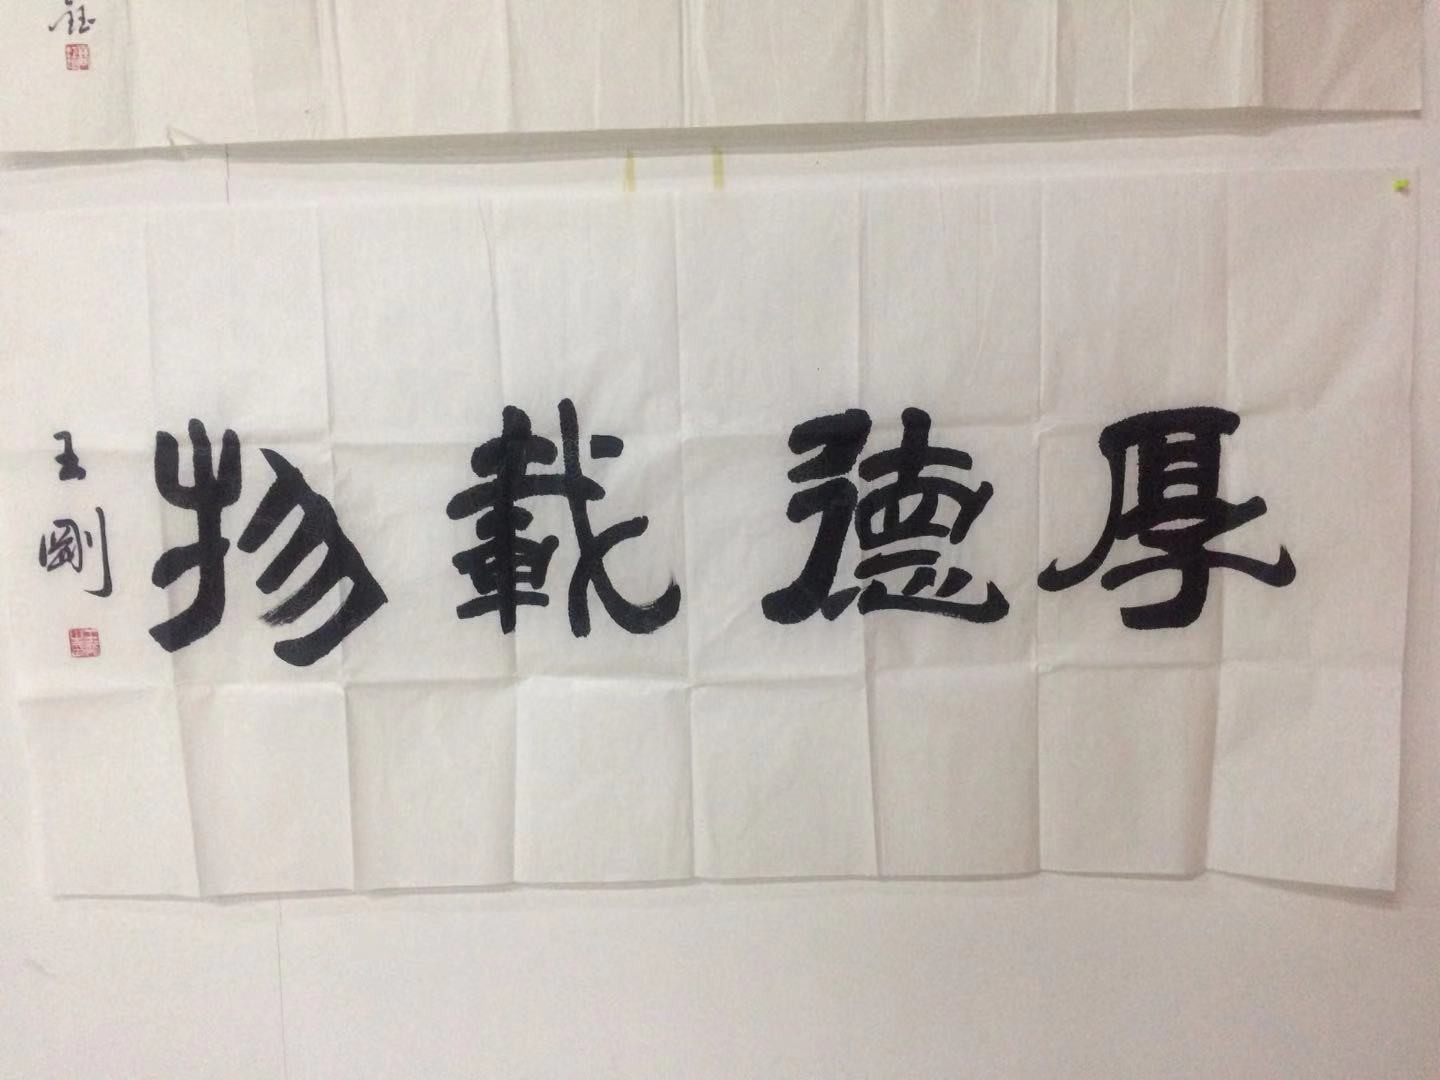 鈺
厚德載物
王剛